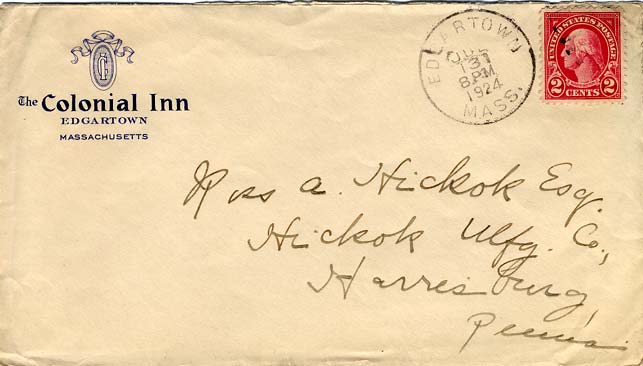 The Colonial Inn
EDGARTOWN
MASSACHUSETTS
EDGARTOWN
31
8 PM
1924
MASS.
UNITED STATES POSTAGE
2 CENTS 2
Ross A. Hickok Esq.
Hickok Mfg. Co.,
Harrisburg,
Penna.